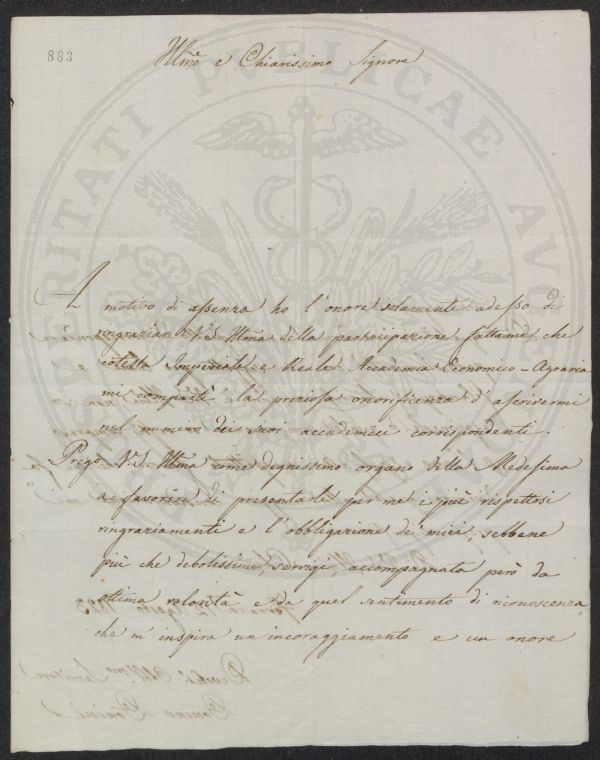 883
Illmo e Chiarissimo Signore
A motivo di assenza ho l'onore solamente adesso di
ringraziar V.S. Illma della partecipazione fattami, che
cotesta Imperiale e Reale Accademia Economico-Agraria
mi compartì la preziosa onorificenza d'ascrivermi
nel numero dei suoi accademici corrispondenti.
Prego V.S. Illma come degnissimo organo della Medesima
a favorire di presentarle per me i più rispettosi
ringraziamenti e l'obbligazione de' miei, sebbene
più che debolissimi, servigi, accompagnata però da
ottima volontà e da quel sentimento di riconoscenza,
che m'inspira un incoraggiamento e un onore
PROSPERITATI PUBLICAE AUGENDAE